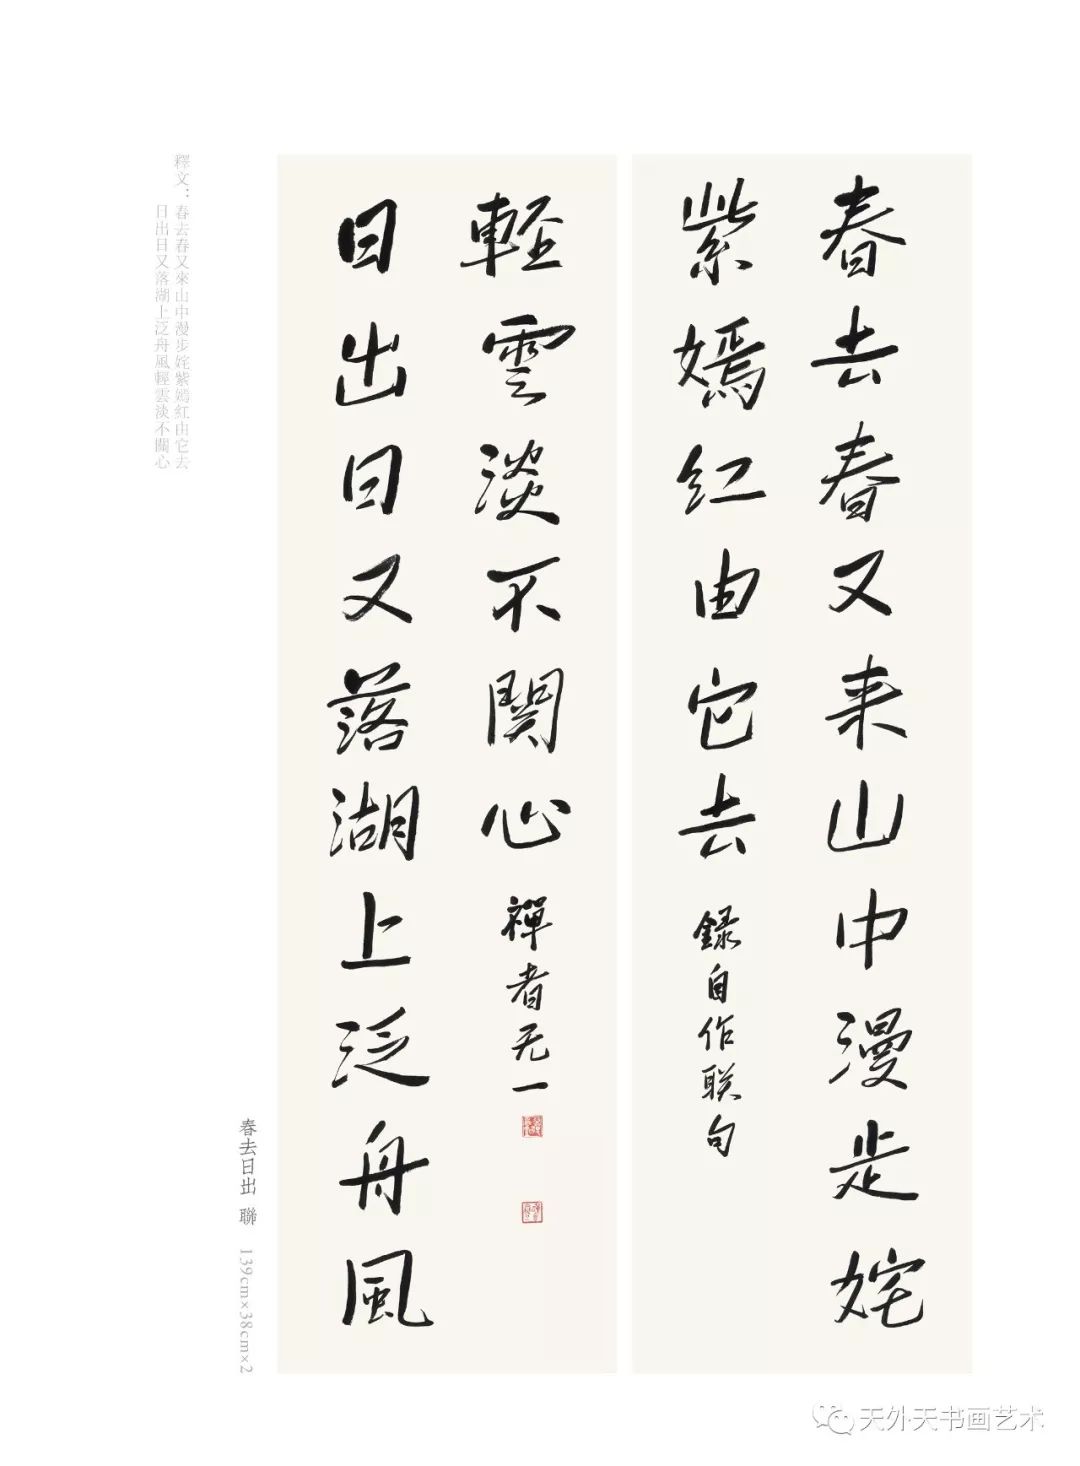 春去春又来山中漫步姹
紫嫣红由它去
録自作联句
日出日又落湖上泛舟風
輕雲淡不関心
禪者无一
春去日出 聯 139cm×38cm×2
釋文：春去春又來山中漫步姹紫嫣红由它去
日出日又落湖上泛舟風輕雲淡不關心
天外天书画艺术